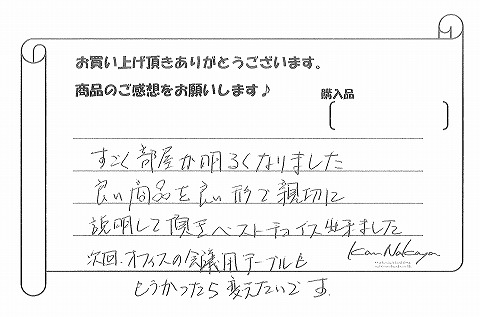 お買い上げ頂きありがとうございます。
商品のご感想をお願いします♪
購入品
すごく部屋が明るくなりました
良い商品を良い形で親切に
説明して頂きベストチョイス出来ました
次回、オフィスの会議用テーブルも
もうかったら変えたいです
KanNakaya